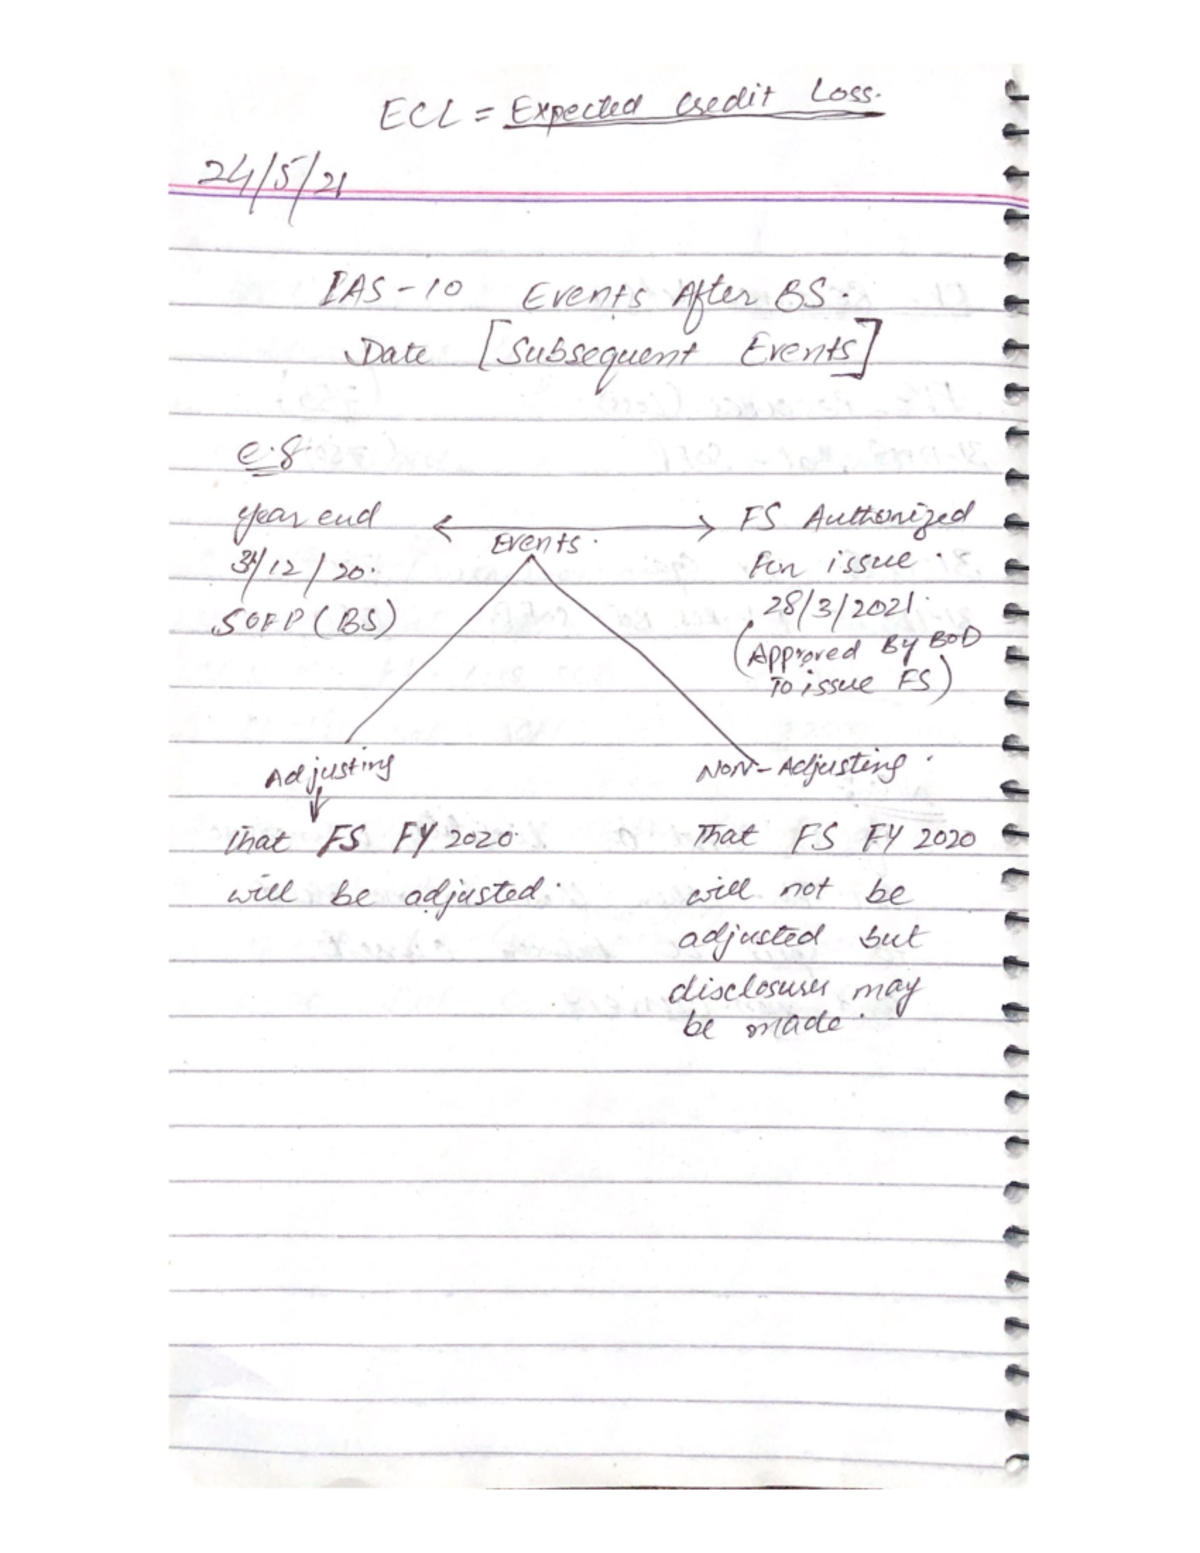 ECL = Expected Credit Loss.
24/5/21
IAS-10 Events After BS.
Date [Subsequent Events]
e.g
year end
31/12/20.
SOFP (BS)
Events.
FS Authorized
For issue.
28/3/2021.
(Approved By BoD
To issue FS)
Adjusting
Non-Adjusting.
That FS FY 2020
will be adjusted.
That FS FY 2020
will not be
adjusted but
disclosures may
be made.